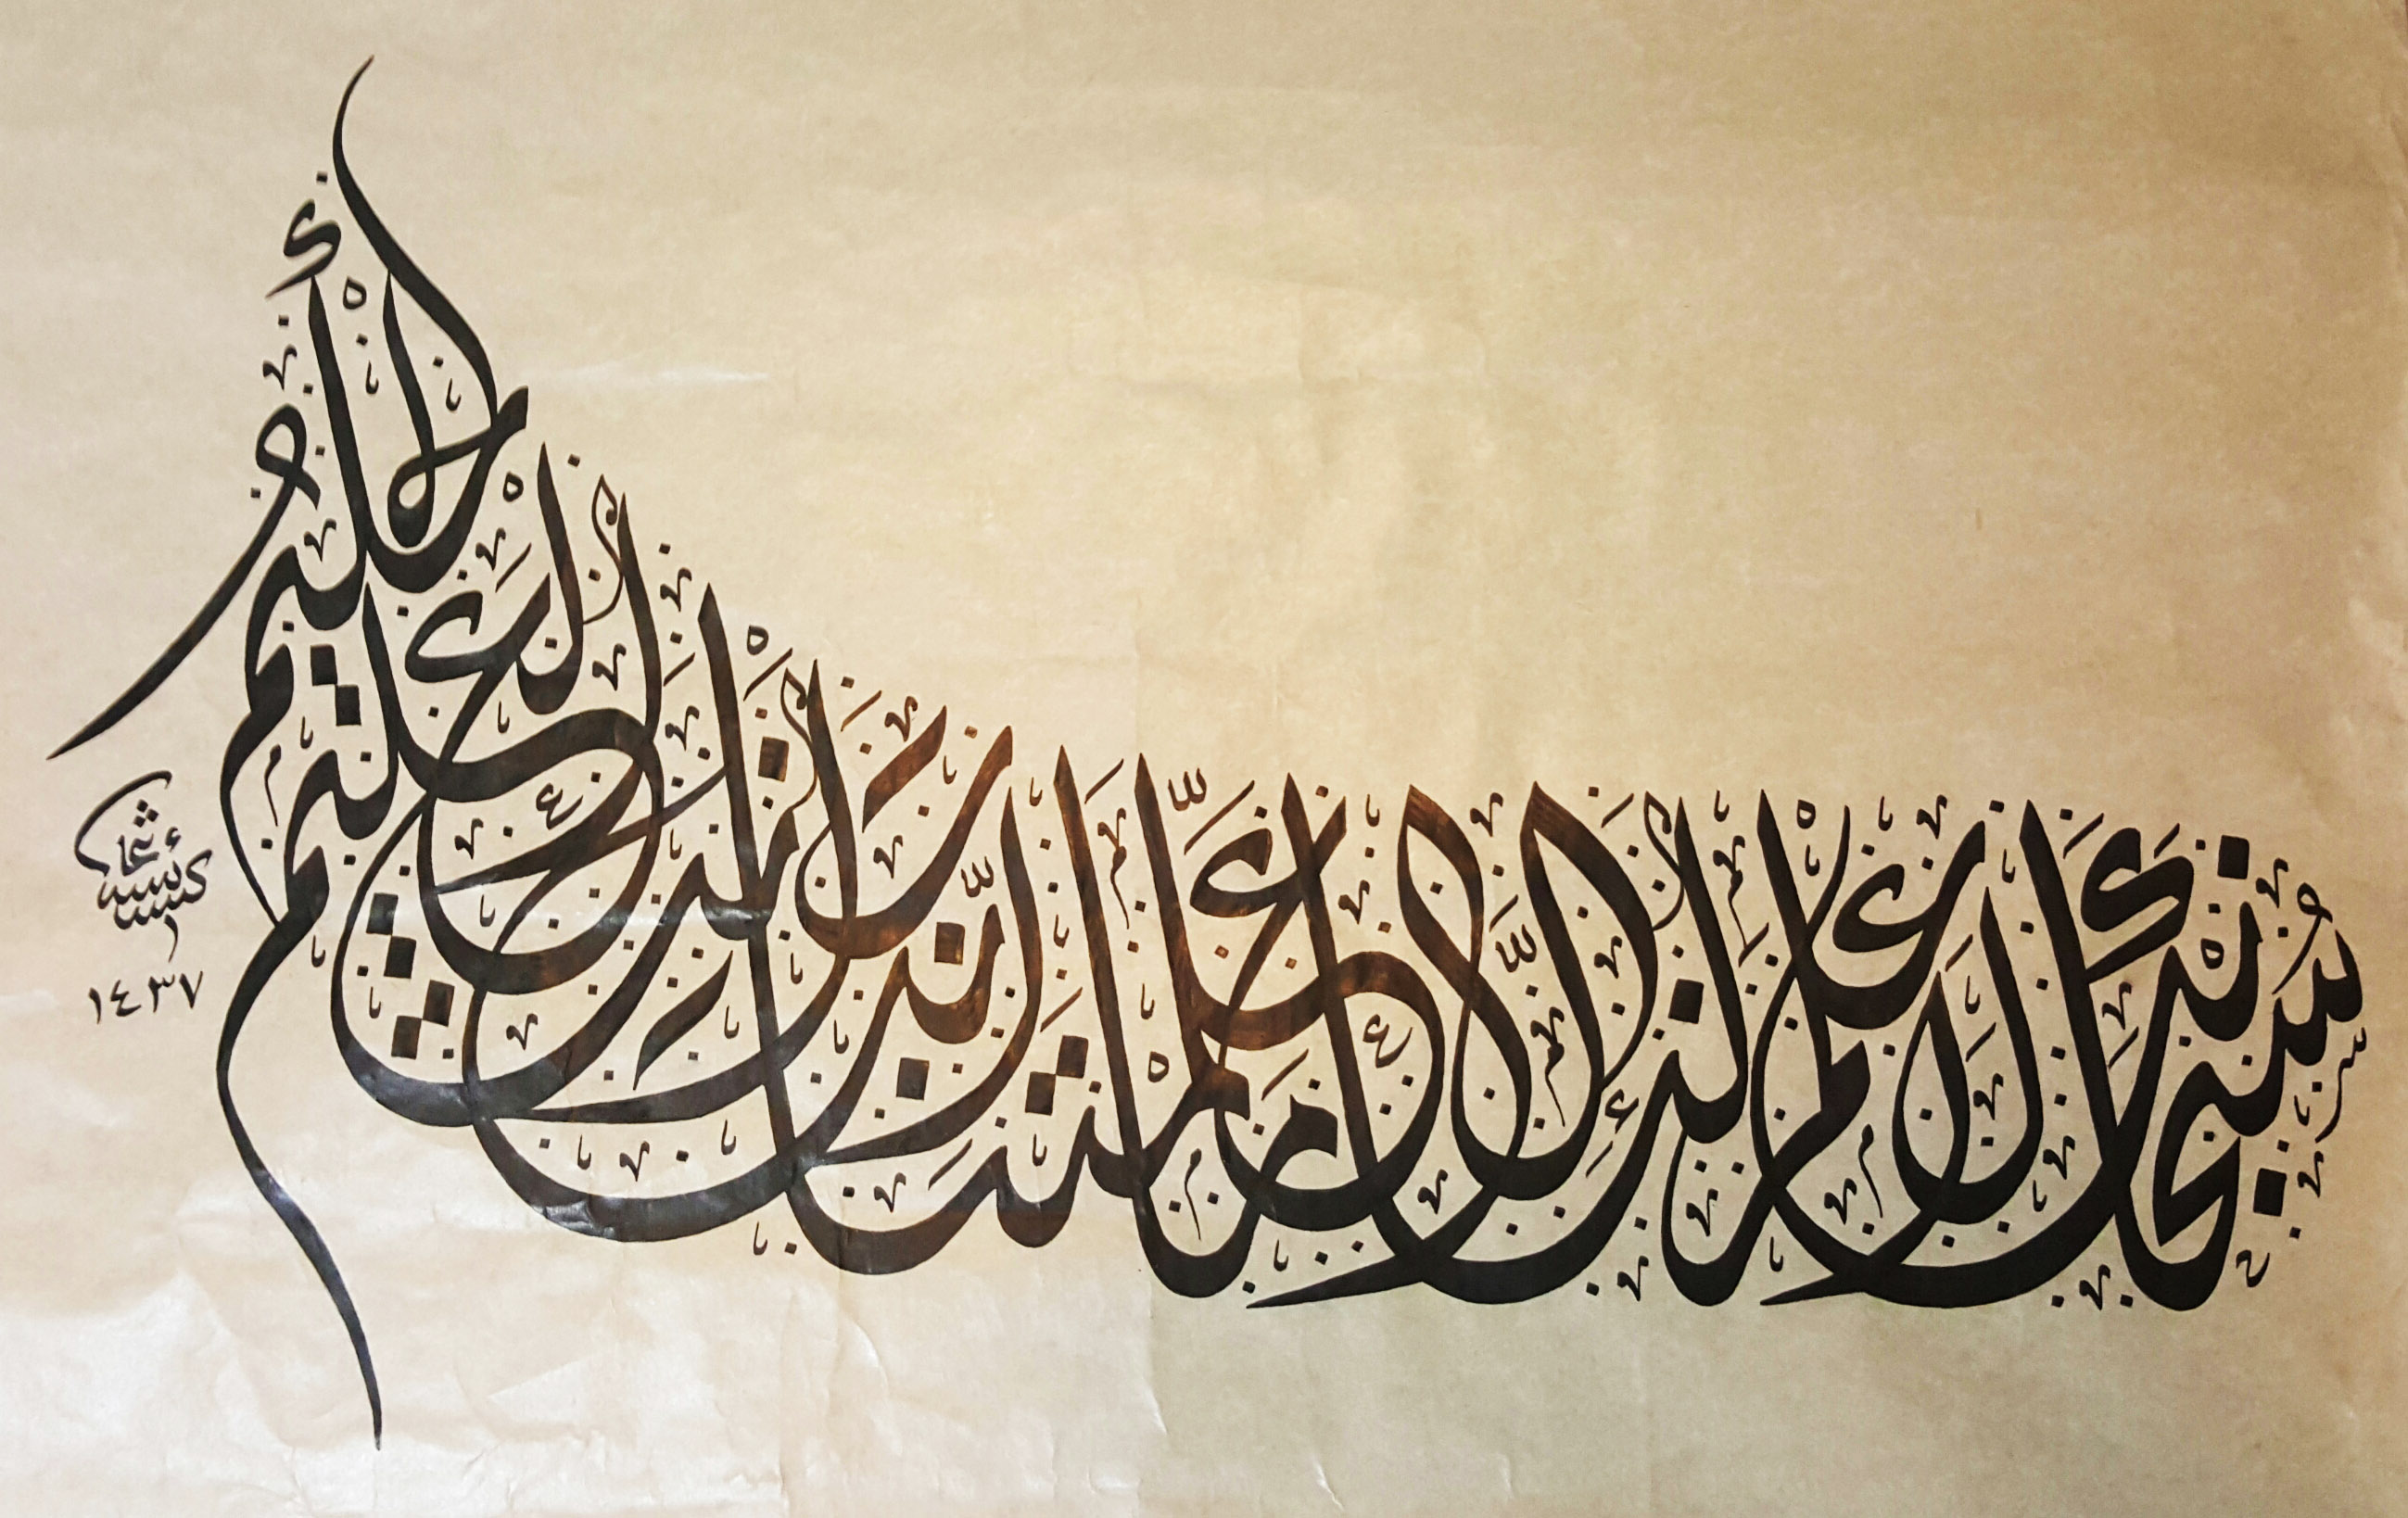 سُبْحَانَكَ لَا عِلْمَ لَنَا إِلَّا مَا عَلَّمْتَنَا إِنَّكَ أَنْتَ الْعَلِيمُ الْحَكِيمُ
١٤٣٧